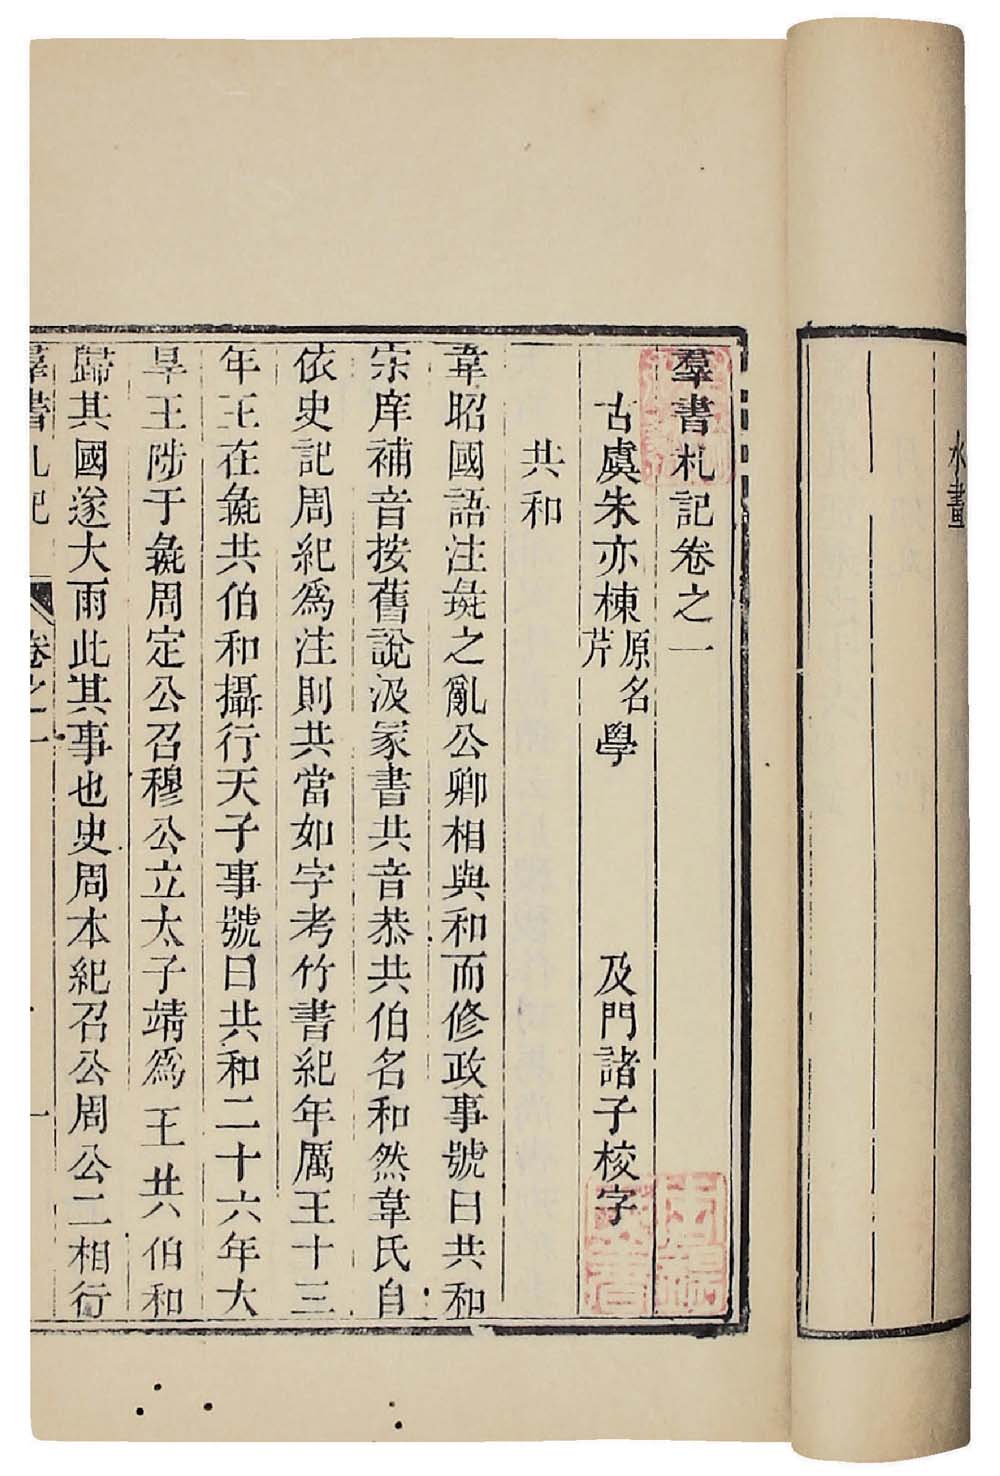 羣書札記卷之一
古虞朱亦棟原名芹學　及門諸子校字
共和
韋昭國語注彘之亂公卿相與和而修政事號曰共和
宗庠補音按舊說汲冢書共音恭共伯名和然韋氏自
依史記周紀爲注則共當如字考竹書紀年厲王十三
年王在彘共伯和攝行天子事號曰共和二十六年大
旱王陟于彘周定公召穆公立太子靖爲王共伯和
歸其國遂大雨此其事也史周本紀召公周公二相行
羣書札記 卷之一 一
水畫